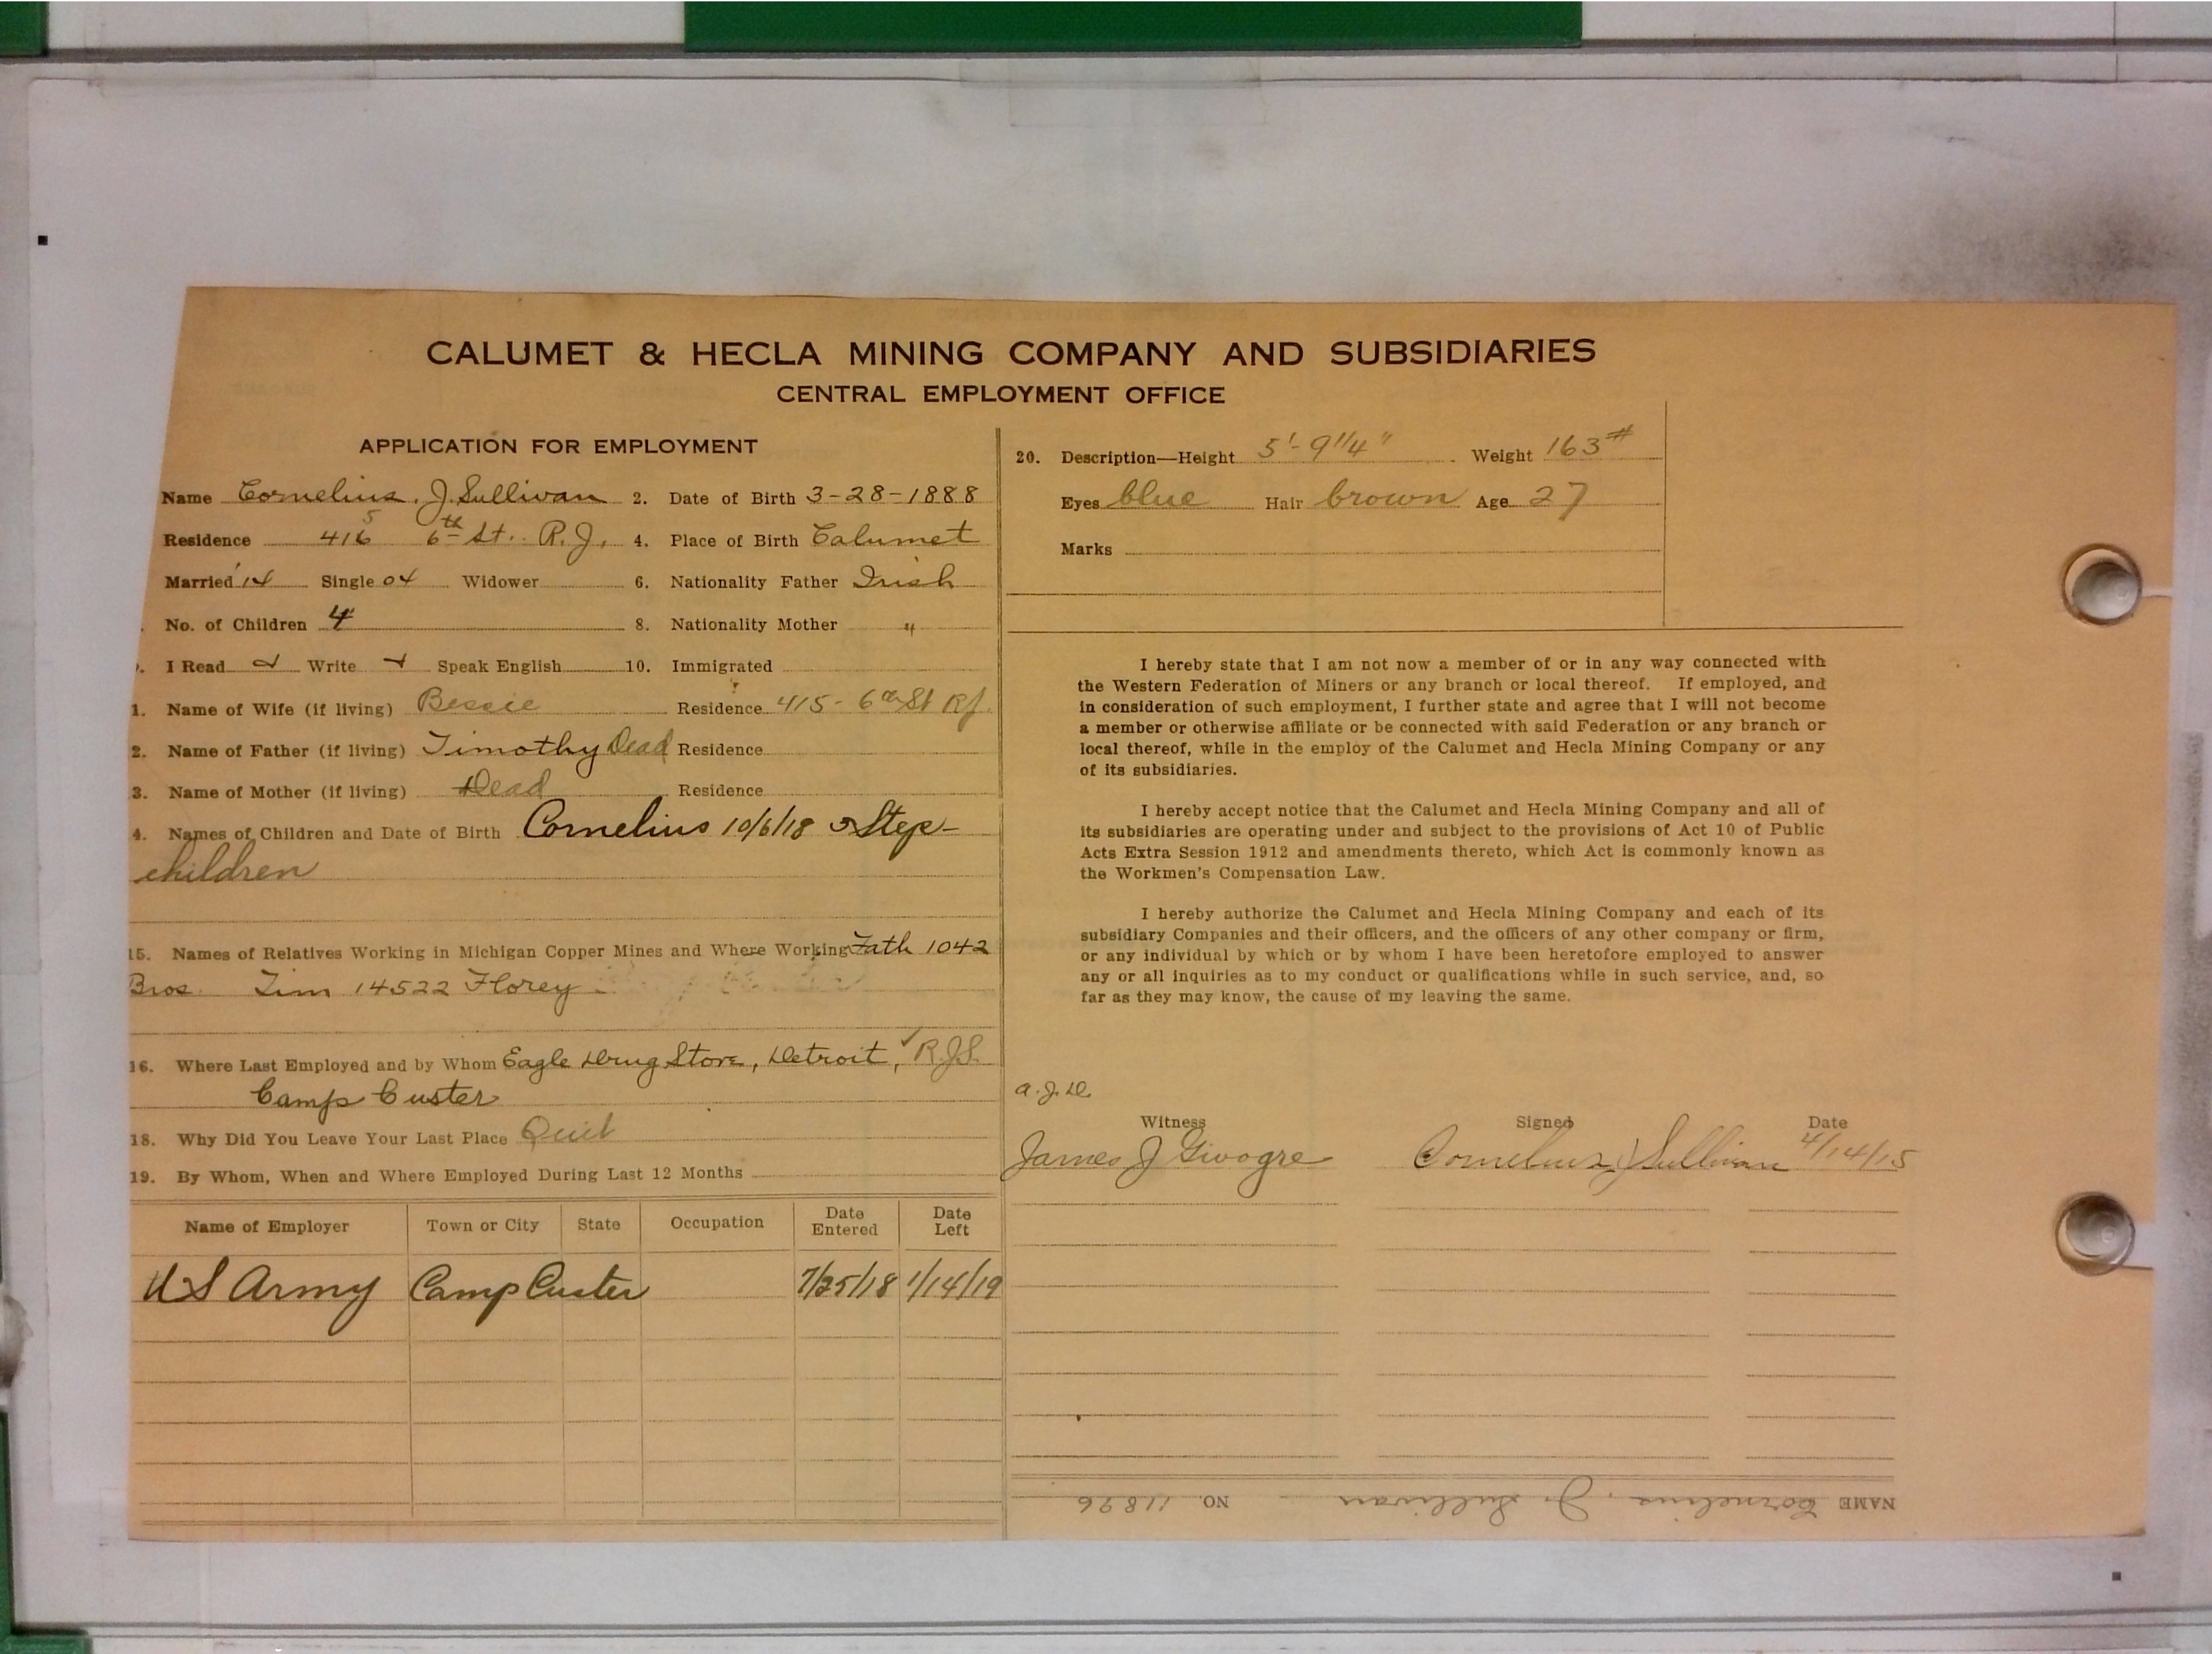 CALUMET & HECLA MINING COMPANY AND SUBSIDIARIES
CENTRAL EMPLOYMENT OFFICE
APPLICATION FOR EMPLOYMENT
Name Cornelius. J. Sullivan 2. Date of Birth 3-28-1888
5
Residence 416 6th St. R.J. 4. Place of Birth Calumet
Married Single Widower 6. Nationality Father Irish
No. of Children 4 8. Nationality Mother "
I Read Write Speak English 10. Immigrated
1. Name of Wife (if living) Bessie Residence 415- 6th St RJ.
2. Name of Father (if living) Timothy Dead Residence
3. Name of Mother (if living) Dead Residence
4. Names of Children and Date of Birth Cornelius 10/6/18 3 Step-
children
15. Names of Relatives Working in Michigan Copper Mines and Where Working Fath 1042
Bros. Tim 14522 Florey
16. Where Last Employed and by Whom Eagle Drug Store, Detroit, R.J.S.
Camp Custer
18. Why Did You Leave Your Last Place Quit
19. By Whom, When and Where Employed During Last 12 Months
Name of Employer Town or City State Occupation Date Entered Date Left
U S Army Camp Custer 7/25/18 1/14/19
20. Description—Height 5'-9 1/4" Weight 163#
Eyes blue Hair brown Age 27
Marks
I hereby state that I am not now a member of or in any way connected with
the Western Federation of Miners or any branch or local thereof. If employed, and
in consideration of such employment, I further state and agree that I will not become
a member or otherwise affiliate or be connected with said Federation or any branch or
local thereof, while in the employ of the Calumet and Hecla Mining Company or any
of its subsidiaries.
I hereby accept notice that the Calumet and Hecla Mining Company and all of
its subsidiaries are operating under and subject to the provisions of Act 10 of Public
Acts Extra Session 1912 and amendments thereto, which Act is commonly known as
the Workmen's Compensation Law.
I hereby authorize the Calumet and Hecla Mining Company and each of its
subsidiary Companies and their officers, and the officers of any other company or firm,
or any individual by which or by whom I have been heretofore employed to answer
any or all inquiries as to my conduct or qualifications while in such service, and, so
far as they may know, the cause of my leaving the same.
a.J.D.
Witness Signed Date
James J Cornelius J Sullivan 4/14/15
NAME Cornelius. J. Sullivan NO. 11896